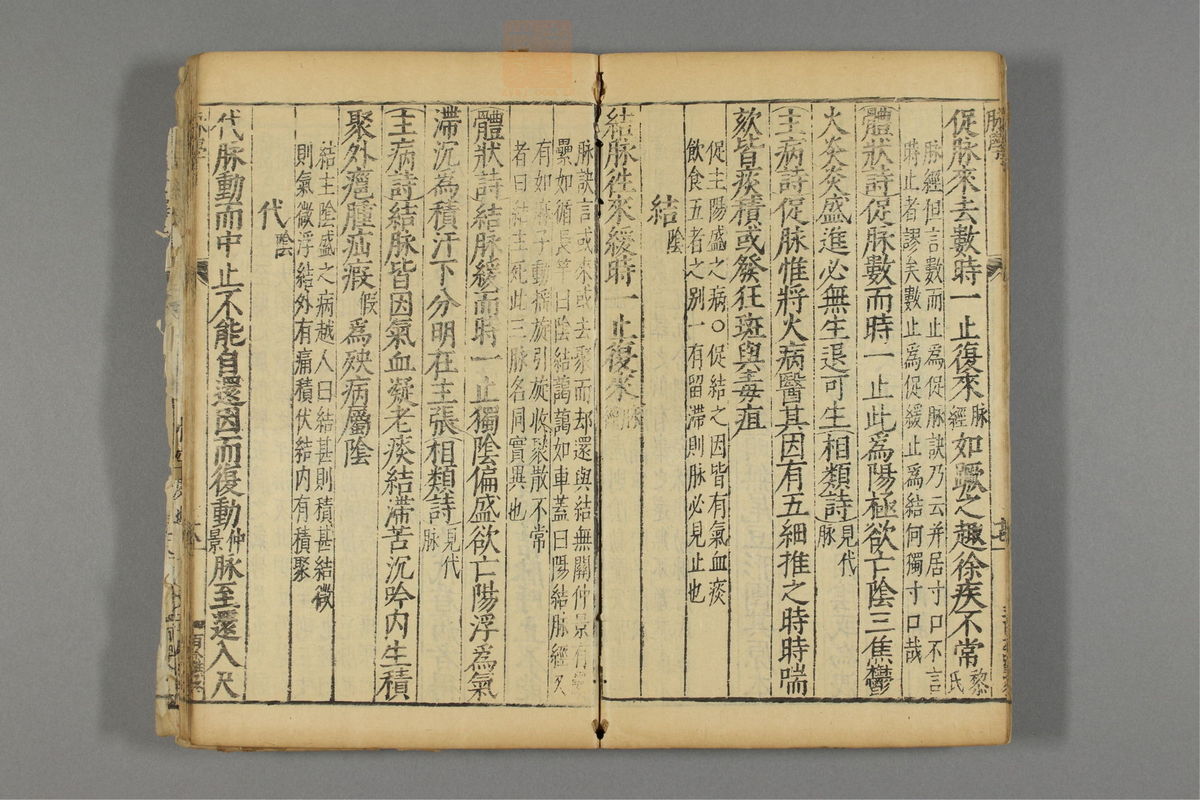 促脉來去數時一止復來脉經如蹶之趣徐疾不常黎氏
脉經但言數而止為促脉訣乃云并居寸口不言
時止者謬矣數止為促緩止為結何獨寸口哉
體狀詩促脉數而時一止此為陽極欲亡陰三焦鬱
火炎炎盛進必無生退可生相類詩見代脉
主病詩促脉惟將火病醫其因有五細推之時時喘
欬皆痰積或發狂斑與毒疽
促主陽盛之病○促結之因皆有氣血痰
飲食五者之别一有留滯則脉必見止也
結陰
結脉往來緩時一止復來脉經
脉訣言或來或去聚而却還與結無關仲景有
纍如循長竿曰陰結藹藹如車蓋曰陽結脉經又
有如麻子動搖旋引旋收聚散不常
者曰結主死此三脉名同實異也
體狀詩結脉緩而時一止獨陰偏盛欲亡陽浮為氣
滯沉為積汗下分明在主張相類詩見代脉
主病詩結脉皆因氣血凝老痰結滯苦沉吟内生積
聚外癰腫疝瘕假為殃病屬陰
結主陰盛之病越人曰結甚則積甚結微
則氣微浮結外有痛積伏結内有積聚
代陰
代脉動而中止不能自還因而復動仲景脉至還入尺